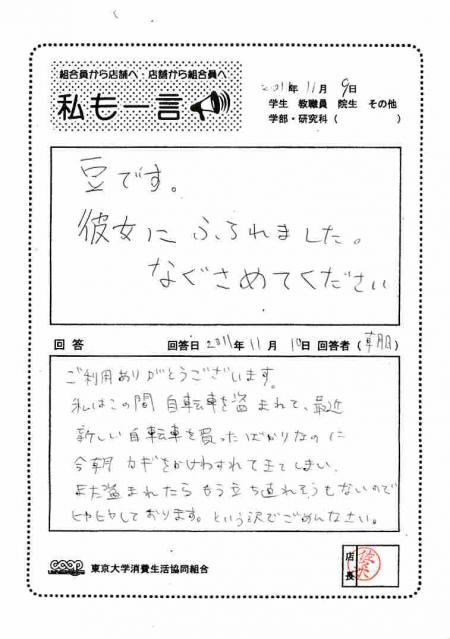 組合員から店舗へ・店舗から組合員へ
私も一言
2011年 11月 9日
学生 教職員 院生 その他
学部・研究科 ( )
豆です。
彼女に ふられました。
なぐさめてください
回答 回答日 2011年 11月 10日 回答者 (朝日)
ご利用ありがとうございます。
私はこの間 自転車を盗まれて、最近
新しい自転車を買ったばかりなのに
今朝 カギをかけわすれてきてしまい、
また盗まれたら もう立ち直れそうもないので
ヒヤヒヤしております。という訳でごめんなさい。
co-op 東京大学消費生活協同組合
店長